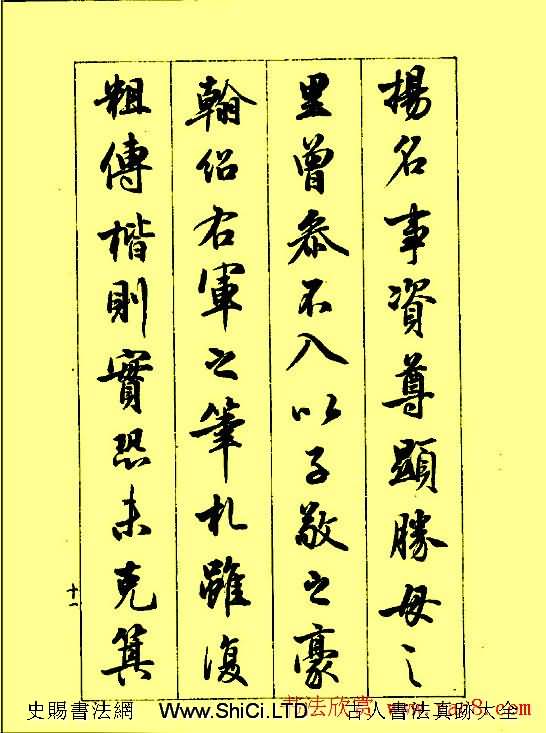 揚名事資尊顯勝母之
里曾參不入以子敬之豪
翰紹右軍之筆札雖復
粗傳楷則實恐未克箕
十一
书法欣赏
史賜書法網 Www.ShiCi.LTD 古人書法真跡大全